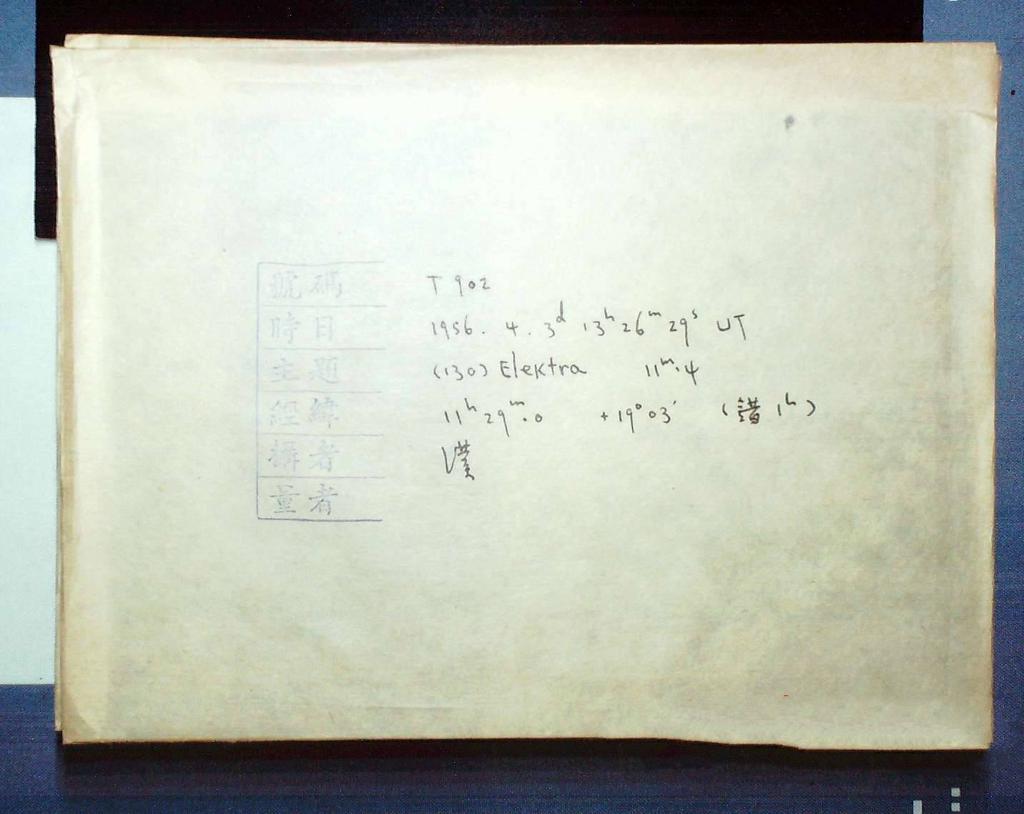 號碼 T 902
時日 1956. 4. 3ᵈ 13ʰ 26ᵐ 29ˢ UT
主題 (130) Elektra 11ᵐ.4
經緯 11ʰ 29ᵐ.0 +19°03′ (錯 1ʰ)
攝者
量者